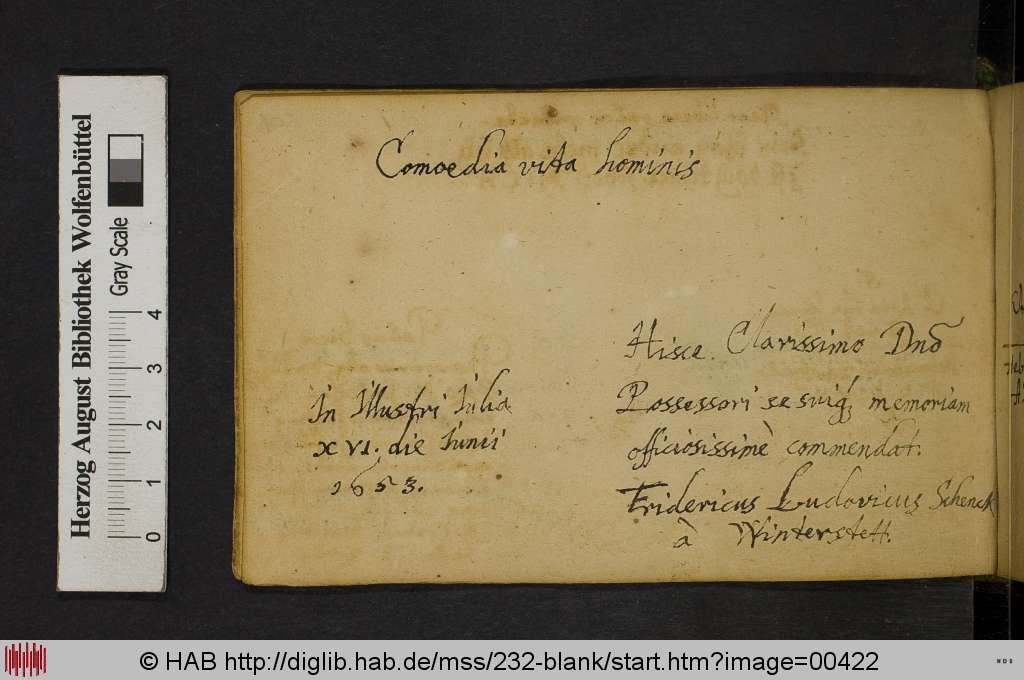 Comoedia vita hominis
Hisce Clarissimo Dnō
Possessori se suiq́ memoriam
officiosissimè commendat.
Fridericus Ludovicus Schenck
à Winterstett.
In Illustri Iulia
XVI. die Iunii
1653.
Herzog August Bibliothek Wolfenbüttel
Gray Scale
0 1 2 3 4
© HAB http://diglib.hab.de/mss/232-blank/start.htm?image=00422